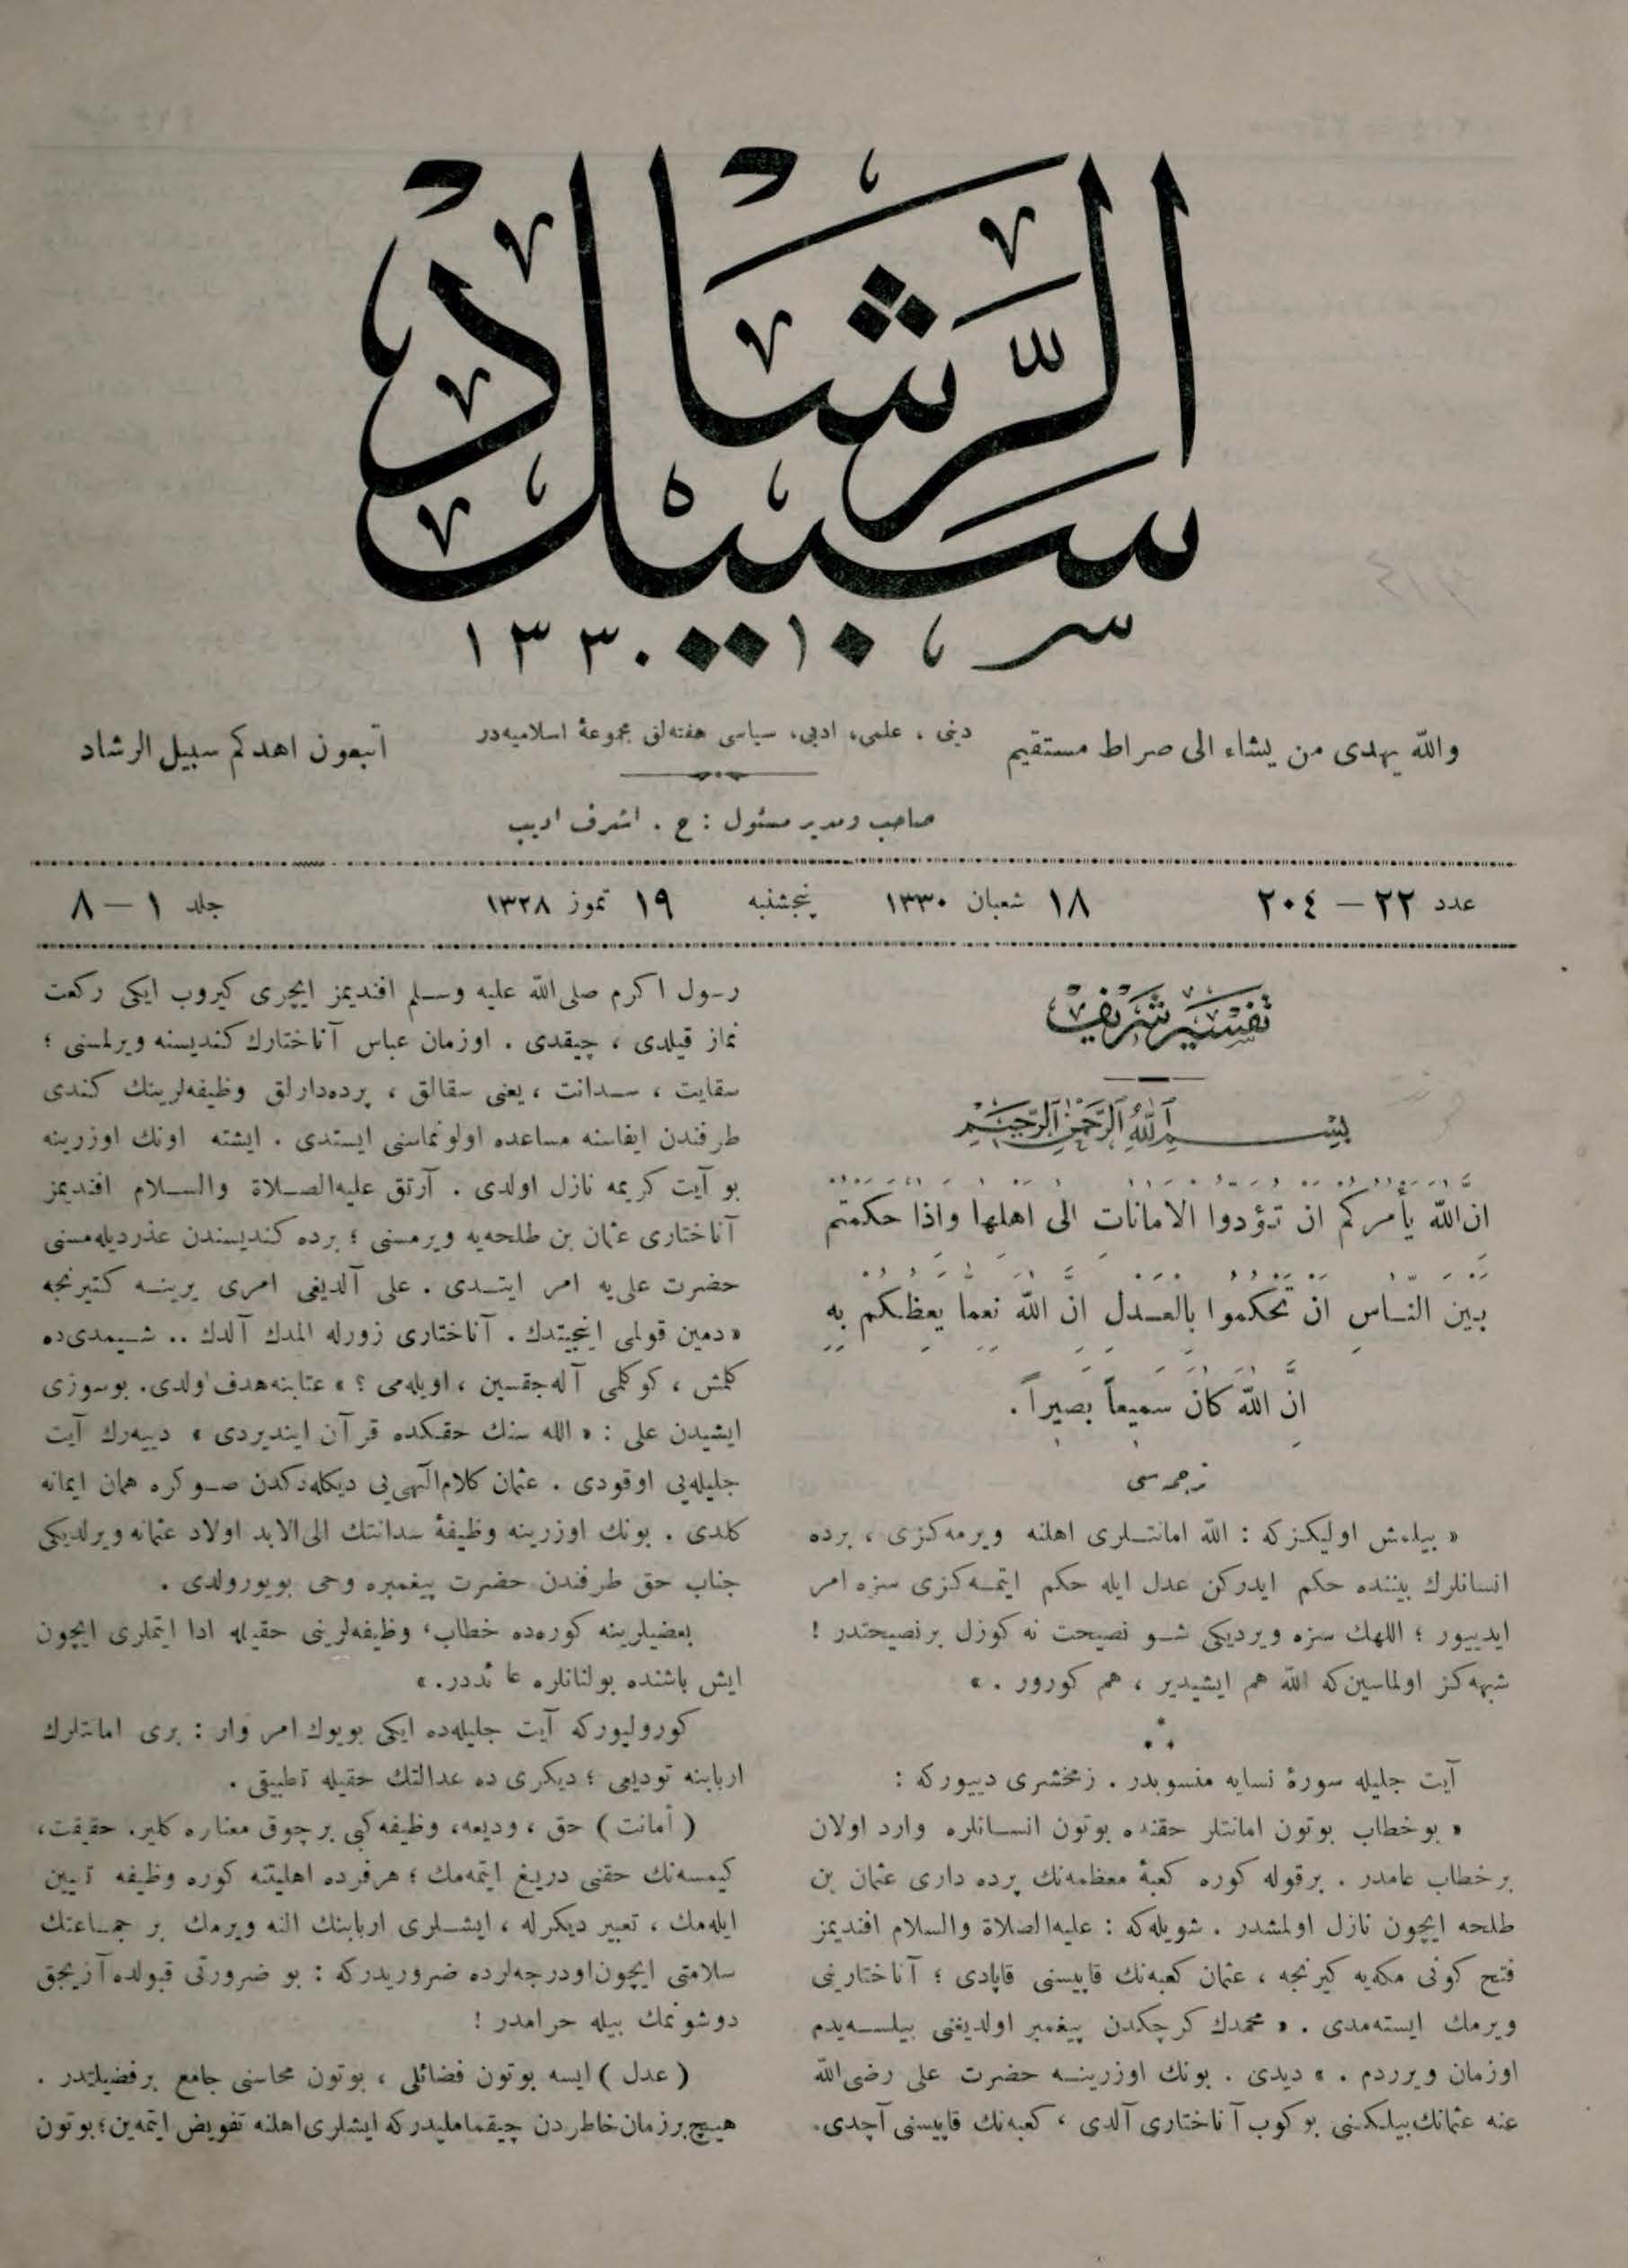 سبيل الرشاد
١٣٣٠
والله يهدى من يشاء الى صراط مستقيم
دينى ، علمى، ادبى، سياسى هفته‌لق مجموعهٔ اسلاميه‌در
اتبعون اهدكم سبيل الرشاد
صاحب ومدير مسئول : ح . اشرف اديب
عدد ٢٢ — ٢٠٤
١٨ شعبان ١٣٣٠
پنجشنبه
١٩ تموز ١٣٢٨
جلد ١ — ٨
تفسير شريف
بسم الله الرحمن الرحيم
ان الله يأمركم ان تؤدوا الامانات الى اهلها واذا حكمتم
بين الناس ان تحكموا بالعدل ان الله نعما يعظكم به
ان الله كان سميعاً بصيراً .
ترجمه‌سى
« بيلمش اوليكزكه : الله امانتلرى اهلنه ويرمه‌كزى ، برده
انسانلرك بيننده حكم ايدركن عدل ايله حكم ايتمه‌كزى سزه امر
ايدييور ؛ اللهك سزه ويرديكى شو نصيحت نه كوزل برنصيحتدر !
شبهه‌كز اولماسين‌كه الله هم ايشيدير ، هم كورور . »
آيت جليله سورهٔ نسايه منسوبدر . زمخشرى دييوركه :
« بوخطاب بوتون امانتلر حقنده بوتون انسانلره وارد اولان
برخطاب عامدر . برقوله كوره كعبهٔ معظمه‌نك پرده دارى عثمان بن
طلحه ايچون نازل اولمشدر . شويله‌كه : عليه‌الصلاة والسلام افنديمز
فتح كونى مكه‌يه كيرنجه ، عثمان كعبه‌نك قاپيسنى قاپادى ؛ آناختارينى
ويرمك ايسته‌مدى . « محمدك كرچكدن پيغمبر اولديغنى بيلسه‌يدم
اوزمان ويرردم . » ديدى . بونك اوزرينه حضرت على رضى‌الله
عنه عثمانك بيلكنى بوكوب آناختارى آلدى ، كعبه‌نك قاپيسنى آچدى.
رسول اكرم صلى‌الله عليه وسلم افنديمز ايچرى كيروب ايكى ركعت
نماز قيلدى ، چيقدى . اوزمان عباس آناختارك كنديسنه ويرلمسنى ؛
سقايت ، سدانت ، يعنى سقالق ، پرده‌دارلق وظيفه‌لرينك كندى
طرفندن ايفاسنه مساعده اولونماسنى ايستدى . ايشته اونك اوزرينه
بو آيت كريمه نازل اولدى . آرتق عليه‌الصلاة والسلام افنديمز
آناختارى عثمان بن طلحه‌يه ويرمسنى ؛ برده كنديسندن عذرديله‌مسنى
حضرت على‌يه امر ايتدى . على آلديغى امرى يرينه كتيرنجه
« دمين قولمى اينجيتدك . آناختارى زورله المدك آلدك .. شيمدى‌ده
كلمش ، كوكلمى آله‌جقسين ، اويله‌مى ؟ » عتابنه هدف اولدى. بوسوزى
ايشيدن على : « الله سنك حقكده قرآن اينديردى » دييه‌رك آيت
جليله‌يى اوقودى . عثمان كلام‌الٓهى‌يى ديكله‌دكدن صوكره همان ايمانه
كلدى . بونك اوزرينه وظيفهٔ سدانتك الى‌الابد اولاد عثمانه ويرلديكى
جناب حق طرفندن حضرت پيغمبره وحى بويورولدى .
بعضيلرينه كوره‌ده خطاب، وظيفه‌لرينى حقيله ادا ايتملرى ايچون
ايش باشنده بولنانلره عائددر. »
كورولیوركه آيت جليله‌ده ايكى بويوك امر وار : برى امانتلرك
اربابنه توديعى ؛ ديكرى ده عدالتك حقيله تطبيقى .
( امانت ) حق ، وديعه، وظيفه كبى برچوق معنارہ كلير. حقيقت،
كيمسه‌نك حقنى دريغ ايتمه‌مك ؛ هرفرده اهليتنه كوره وظيفه تعيين
ايله‌مك ، تعبير ديكرله ، ايشلرى اربابنك النه ويرمك بر جماعتك
سلامتى ايچون اودرجه‌لرده ضروريدركه : بو ضرورتى قبولده آزيجق
دوشونمك بيله حرامدر !
( عدل ) ايسه بوتون فضائلى ، بوتون محاسنى جامع برفضيلتدر .
هيچ برزمان خاطردن چيقمامليدركه ايشلرى اهلنه تفويض ايتمه‌ين؛ بوتون